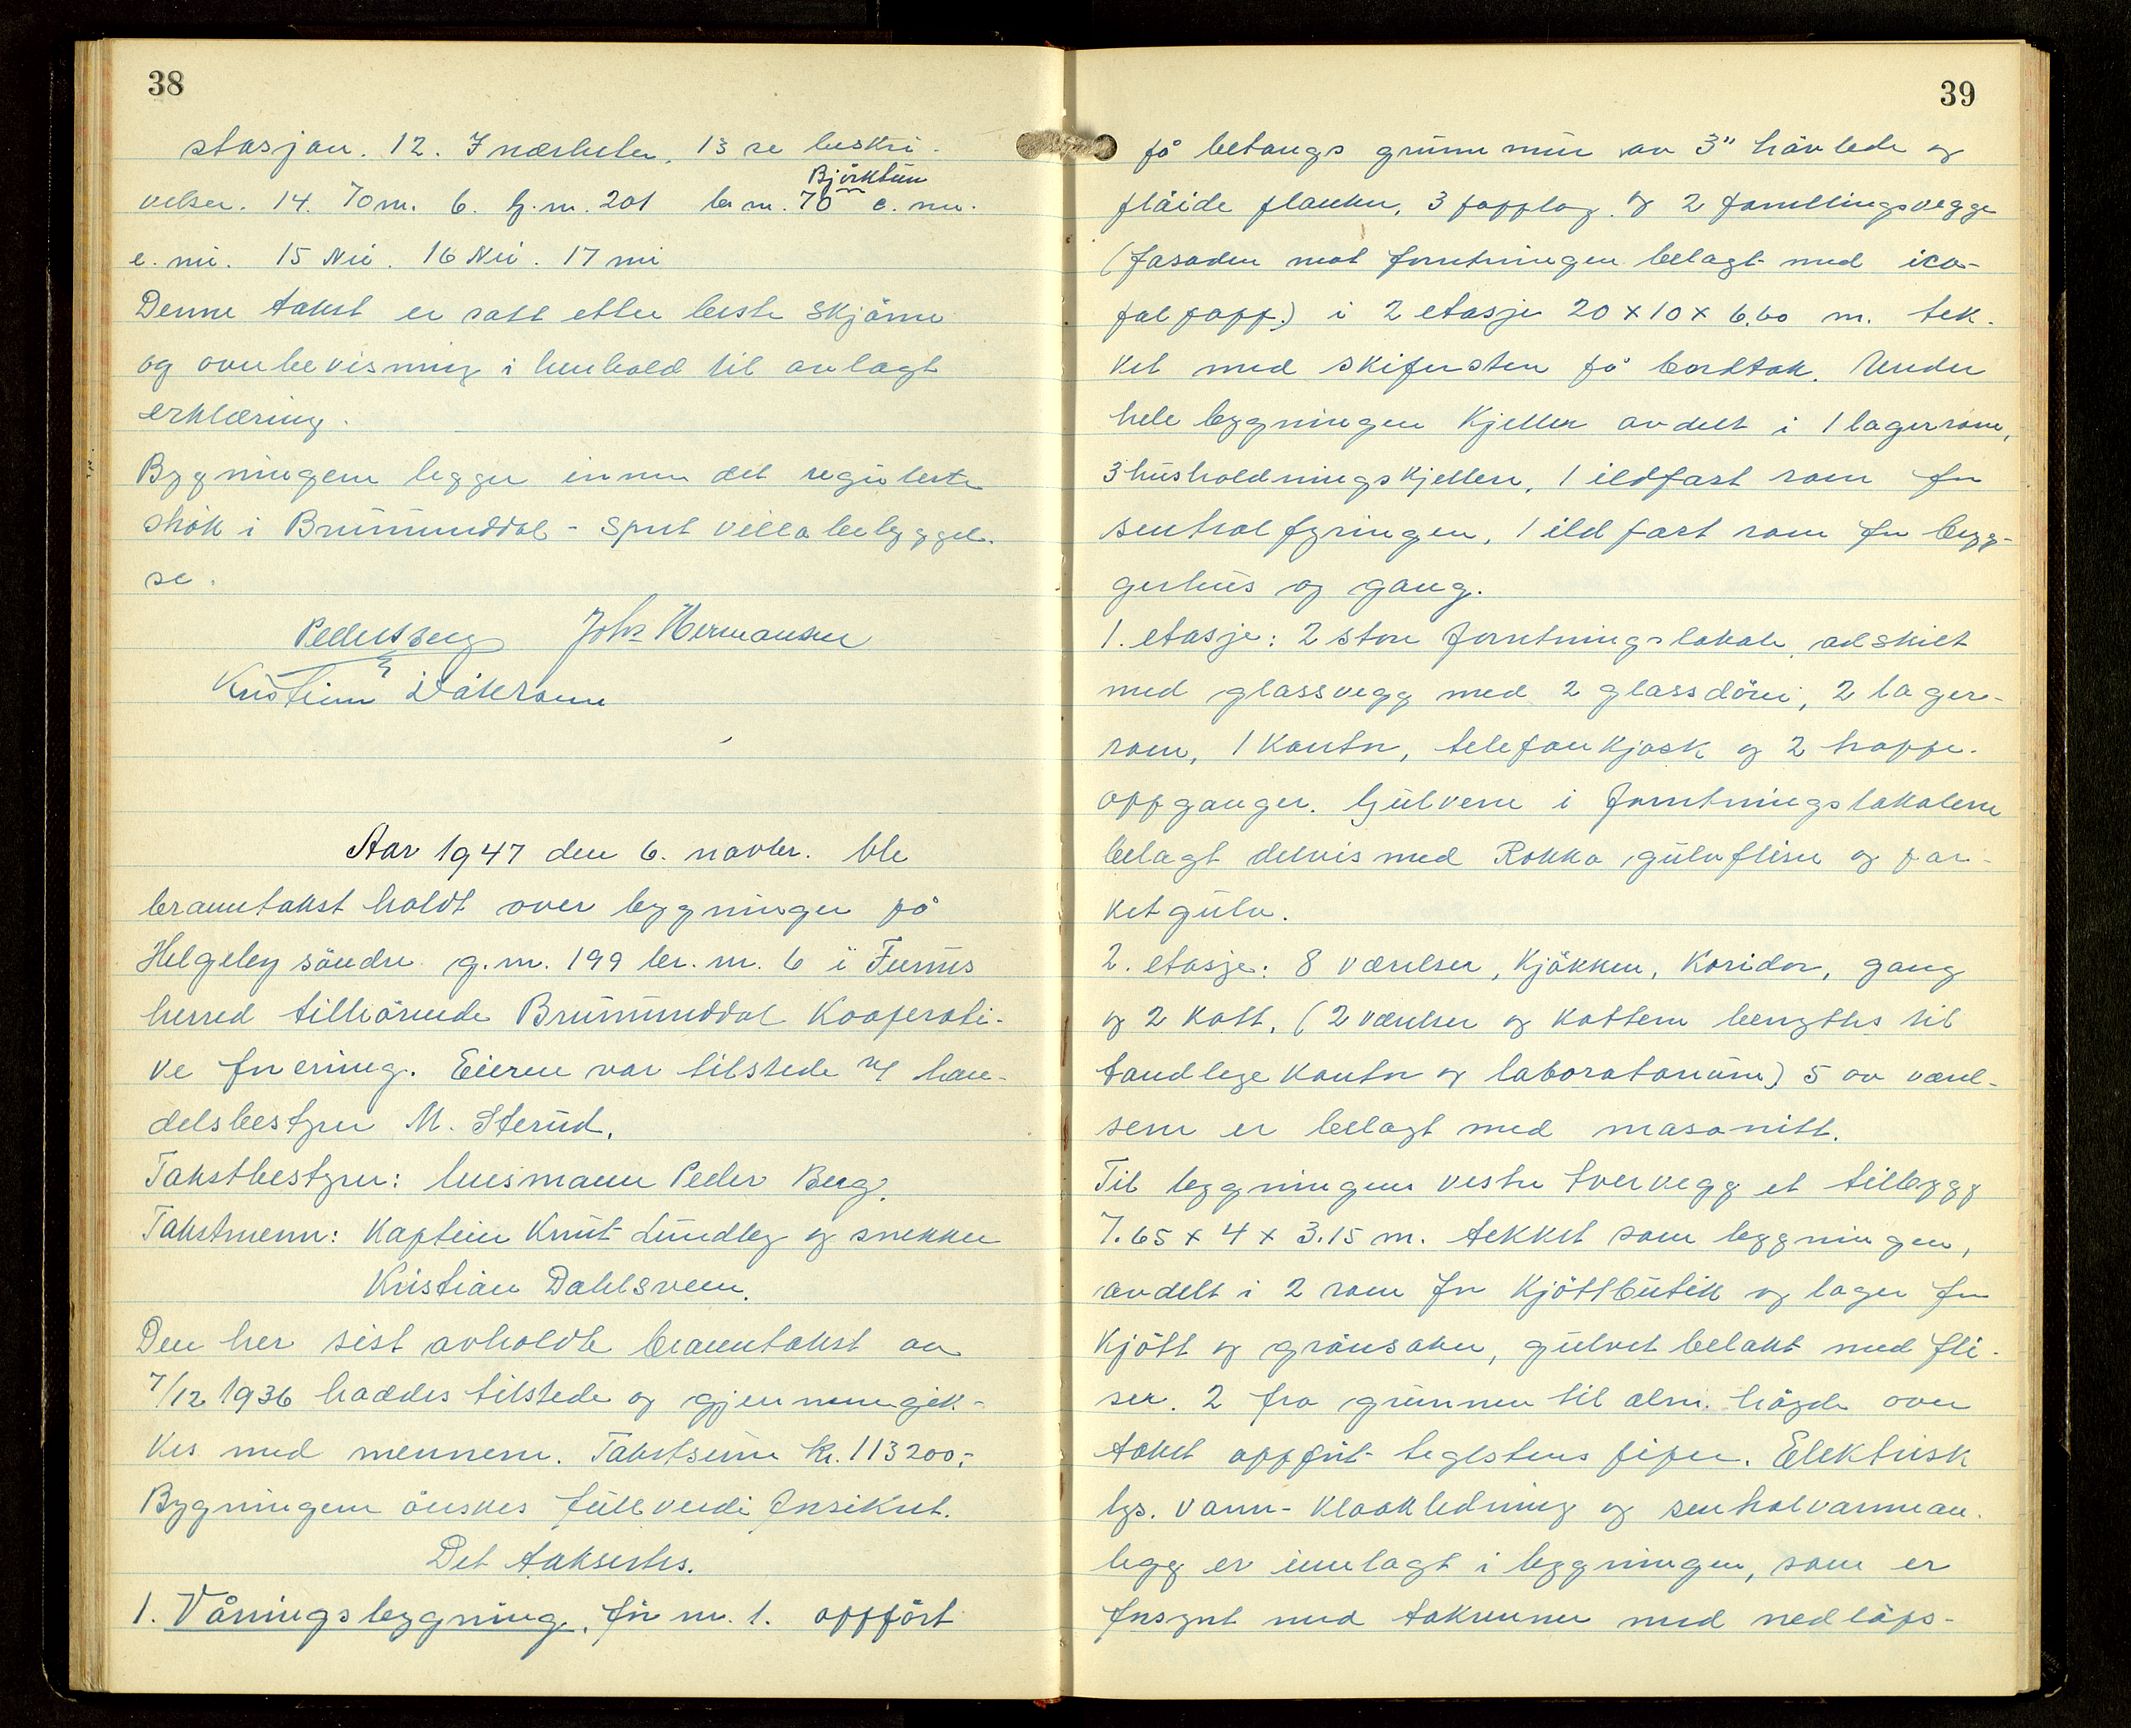 38
stasjon. 12. I nærheten. 13 se beskri-
velsen. 14. 70 m. 6. G.nr. 201 br.nr. 70 e. nr.
Björktun
e. nei. 15 Nei. 16 Nei. 17 nei
Denne takst er satt etter beste skjönn
og overbevisning i henhold til avlagt
erklæring.
Bygningene ligger innen det regulerte
strök i Brumunddal - spret villabebyggel-
se.
Peder Berg John Hermansen
Kristian Dahlsveen
Aar 1947 den 6. novbr. ble
branntakst holdt over bygninger på
Helgeby söndre g.nr. 199 br.nr. 6 i Furnes
herred tilhörende Brumunddal Kooperati-
ve forening. Eieren var tilstede v/ han-
delsbestyrer M. Sterud.
Takstbestyrer: husmann Peder Berg.
Takstmenn: Kaptein Knut Lundby og snekker
Kristian Dahlsveen.
Den her sist avholdte branntakst av
7/12 1936 haddes tilstede og gjennemgik-
kes med mennene. Takstsum kr. 113200,-
Bygningene önskes fullverdi forsikret.
Det takseres.
1. Våningsbygning. för nr. 1. oppfört
39
på betongs grunnmur av 3" hövlede og
plöide planker, 3 papplag og 2 panelingsvegge
(fasaden mot forretningen belagt med ico-
pal papp.) i 2 etasje 20 x 10 x 6.60 m. tek-
ket med skifersten på bordtak. Under
hele bygningen Kjeller avdelt i 1 lagerrom,
3 husholdningskjellere, 1 ildfast rom for
sentralfyringen, 1 ildfast rom for bryg-
gerhus og gang.
1. etasje: 2 store forretningslokale adskilt
med glassvegg med 2 glassdöre, 2 lager-
rom, 1 Kontor, telefonkjosk og 2 trappe-
oppganger. Gulvene i forretningslokalene
belagt delvis med Rokko gulvfliser og par-
ketgulv.
2. etasje: 8 værelser, Kjökken, Koridor, gang
og 2 Kott. (2 værelser og kottene benyttes til
tandlege kontor og laboratorium) 5 av værel-
sene er belagt med masonitt.
Til bygningens vestre tvervegg et tilbygg
7.65 x 4 x 3.15 m. tekket som bygningen,
avdelt i 2 rom for Kjöttbutik og lager for
Kjött og grönsaker, gulvet belakt med fli-
ser. 2 fra grunnen til alm. högde over
taket oppfört teglstens piper. Elektrisk
lys. Vann- Kloakledning og sentralvarmean-
legg er innlagt i bygningen, som er
forsynt med takrenner med nedlöps-